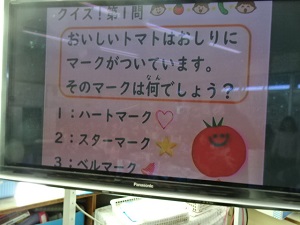 クイズ！第1問
おいしいトマトはおしりに
マークがついています。
そのマークは何でしょう？
なん
1：ハートマーク♡
2：スターマーク
3：ベルマーク
Panasonic